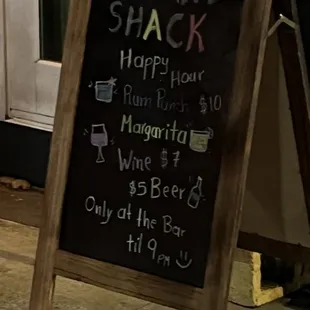 SHACK
Happy
Hour
Rum Punch $10
Margarita
Wine $7
$5 Beer
Only at the Bar
til 9pm